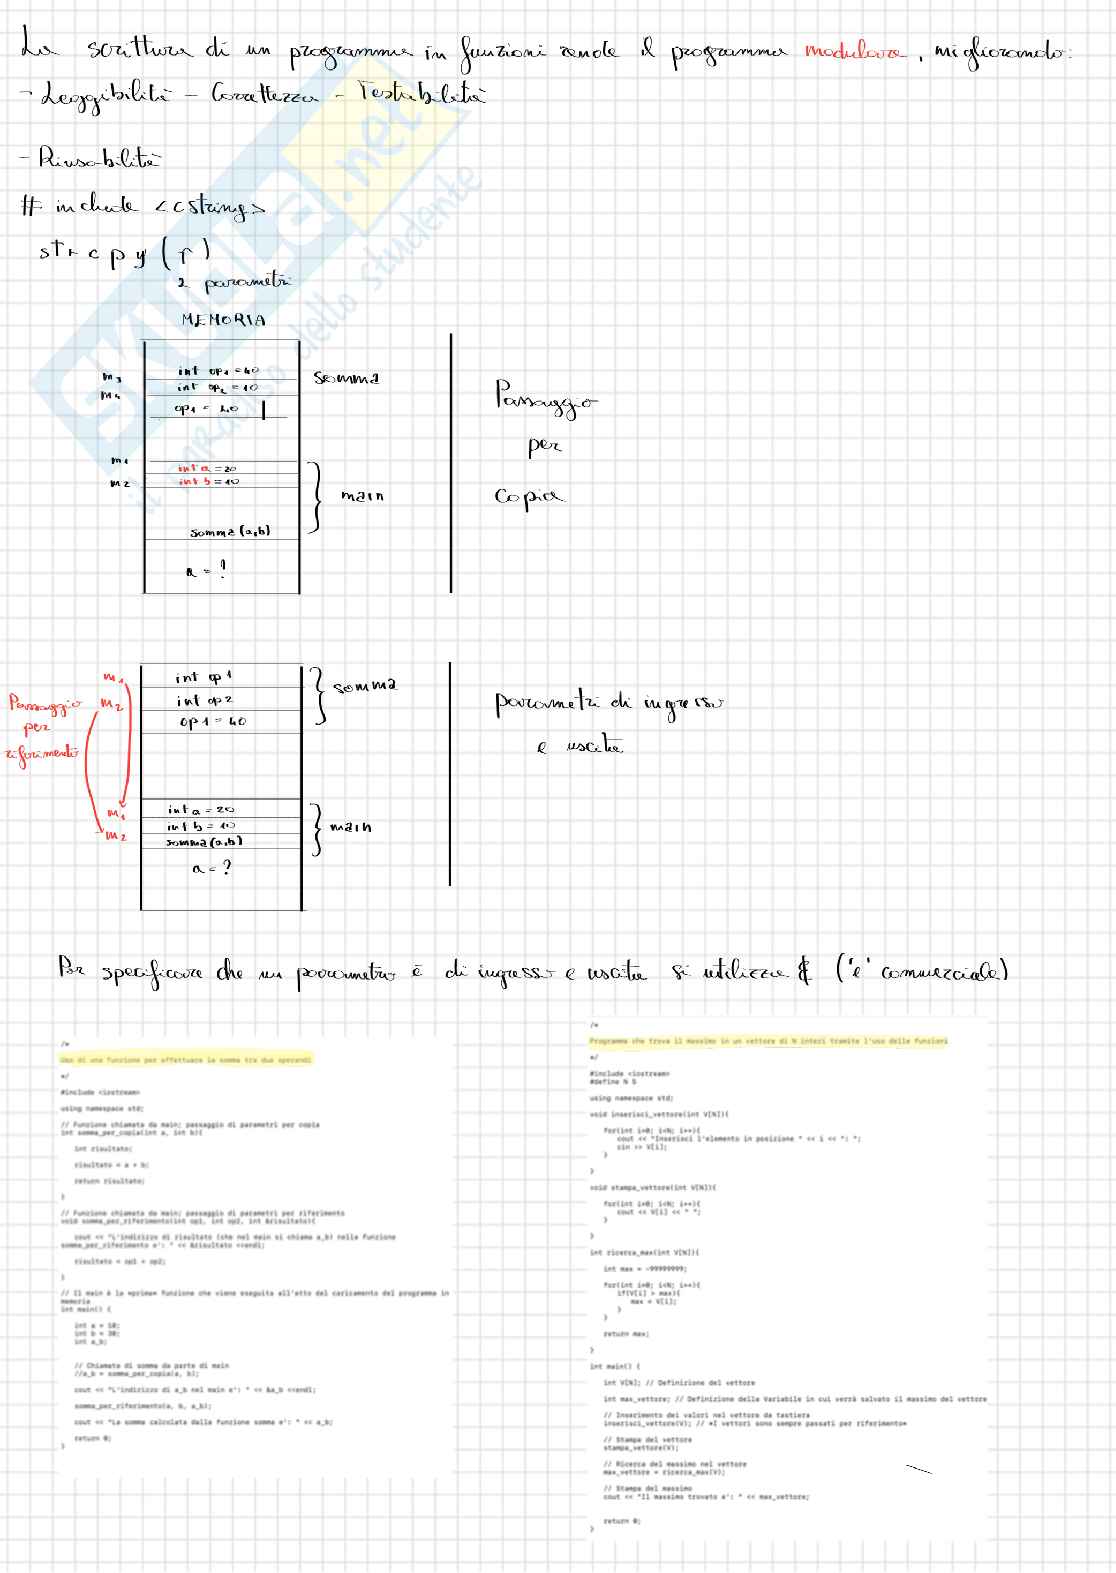 La scrittura di un programma in funzioni rende il programma modulare, migliorando:
- Leggibilità - Correttezza - Testabilità
- Riusabilità
# include <cstring>
strcpy( , )
2 parametri
MEMORIA
m3 int op1 = 40
m4 int op2 = 10
op1 = 40
somma
m1 int a = 20
m2 int b = 10
somma(a,b)
main
a = ?
Passaggio
per
Copia
Passaggio
per
riferimento
m1 int op1
m2 int op2
op1 = 40
somma
m1 int a = 20
m2 int b = 10
somma(a,b)
main
a = ?
parametri di ingresso
e uscita
Per specificare che un parametro è di ingresso e uscita si utilizza & ('e' commerciale)
/*
Uso di una funzione per effettuare la somma tra due operandi
*/
#include <iostream>
using namespace std;
// Funzione chiamata da main; passaggio di parametri per copia
int somma_per_copia(int a, int b){
int risultato;
risultato = a + b;
return risultato;
}
// Funzione chiamata da main; passaggio di parametri per riferimento
void somma_per_riferimento(int op1, int op2, int &risultato){
cout << "L'indirizzo di risultato (che nel main si chiama a_b) nella funzione
somma_per_riferimento e': " << &risultato <<endl;
risultato = op1 + op2;
}
// Il main è la *prima* funzione che viene eseguita all'atto del caricamento del programma in
memoria
int main() {
int a = 10;
int b = 30;
int a_b;
// Chiamata di somma da parte di main
//a_b = somma_per_copia(a, b);
cout << "L'indirizzo di a_b nel main e': " << &a_b <<endl;
somma_per_riferimento(a, b, a_b);
cout << "La somma calcolata dalla funzione somma e': " << a_b;
return 0;
}
/*
Programma che trova il massimo in un vettore di N interi tramite l'uso delle funzioni
*/
#include <iostream>
#define N 5
using namespace std;
void inserisci_vettore(int V[N]){
for(int i=0; i<N; i++){
cout << "Inserisci l'elemento in posizione " << i << ": ";
cin >> V[i];
}
}
void stampa_vettore(int V[N]){
for(int i=0; i<N; i++){
cout << V[i] << " ";
}
}
int ricerca_max(int V[N]){
int max = -99999999;
for(int i=0; i<N; i++){
if(V[i] > max){
max = V[i];
}
}
return max;
}
int main() {
int V[N]; // Definizione del vettore
int max_vettore; // Definizione della Variabile in cui verrà salvato il massimo del vettore
// Inserimento dei valori nel vettore da tastiera
inserisci_vettore(V); // *I vettori sono sempre passati per riferimento*
// Stampa del vettore
stampa_vettore(V);
// Ricerca del massimo nel vettore
max_vettore = ricerca_max(V);
// Stampa del massimo
cout << "Il massimo trovato e': " << max_vettore;
return 0;
}
SKUOLA.net
il paradiso dello studente